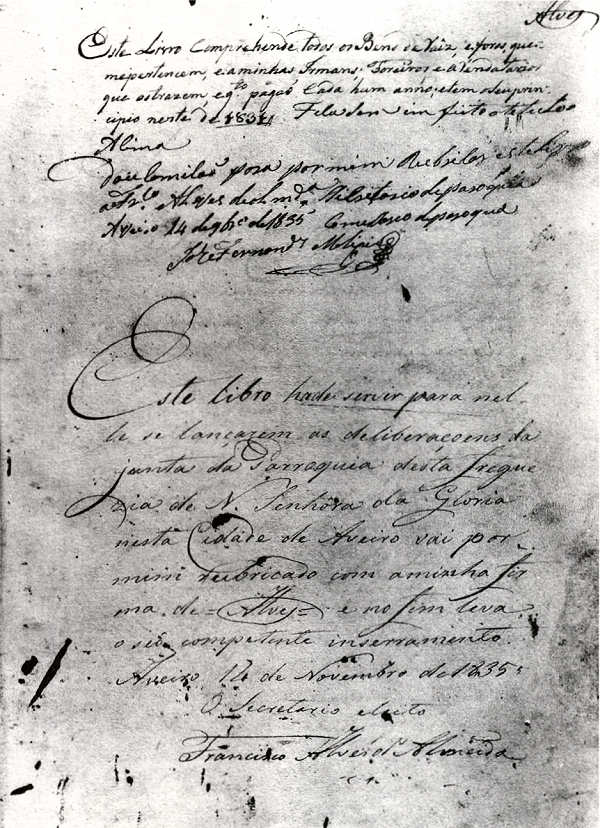 Alves
Este Livro Comprehende todos os Bens de raiz, e foros, que
me pertencem, e aminhas Irmans: Foreiros, e
que os trazem, e q.to pagaõ Cada hum anno, e tem o seu prin
cipio neste de 1834.
Dou Comisaõ para por mim Rubricar este
a Fr.co Alves de Secretario de paroquia
Aveiro 14 de 9br.o de 1835 Comissario de paroquia
Joze Fernand.s
Este libro hade servir para nel-
le se lançarem as deliberaçoens da
junta da Parroquia desta fregue
zia de N. Senhora da Gloria
nesta Cidade de Aveiro vai por
mim rubricado com aminha fir
ma de = Alves = e no fim leva
o seu competente inserramento.
Aveiro, 14 de Novembro de 1835.
O Secretario eleito
Francisco Alves d' Almeida